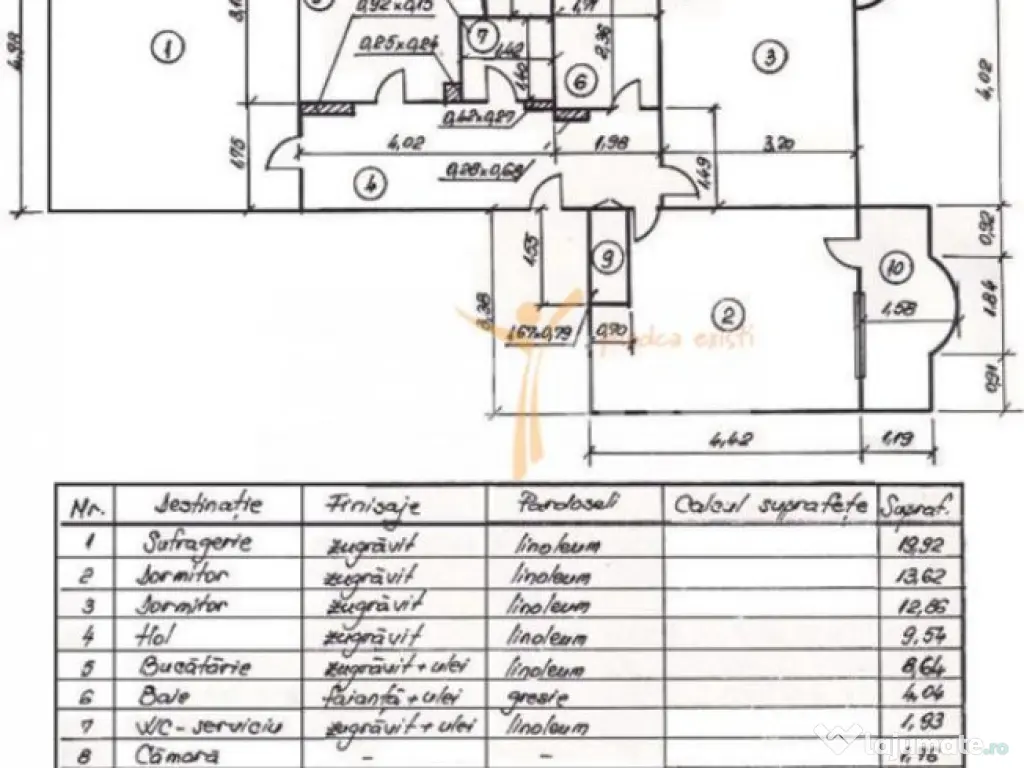 0,92x0,15
0,25x0,24
4,98
1
7
1,42
1,40
2,36
6
3
4,02
0,42x0,27
1,75
4,02
1,98
1,49
3,20
0,28x0,68
4
1,55
9
10
0,92
1,84
1,58
3,38
2
1,67x0,79
0,70
0,91
4,42
1,19
Nr. Destinație Finisaje Pardoseli Calcul suprafețe Supraf.
1 Sufragerie zugrăvit linoleum 19,92
2 Dormitor zugrăvit linoleum 13,62
3 Dormitor zugrăvit linoleum 12,86
4 Hol zugrăvit linoleum 9,54
5 Bucătărie zugrăvit + ulei linoleum 8,64
6 Baie faianță + ulei gresie 4,04
7 WC - serviciu zugrăvit + ulei linoleum 1,93
8 Cămară - - 1,16
lajumate.ro